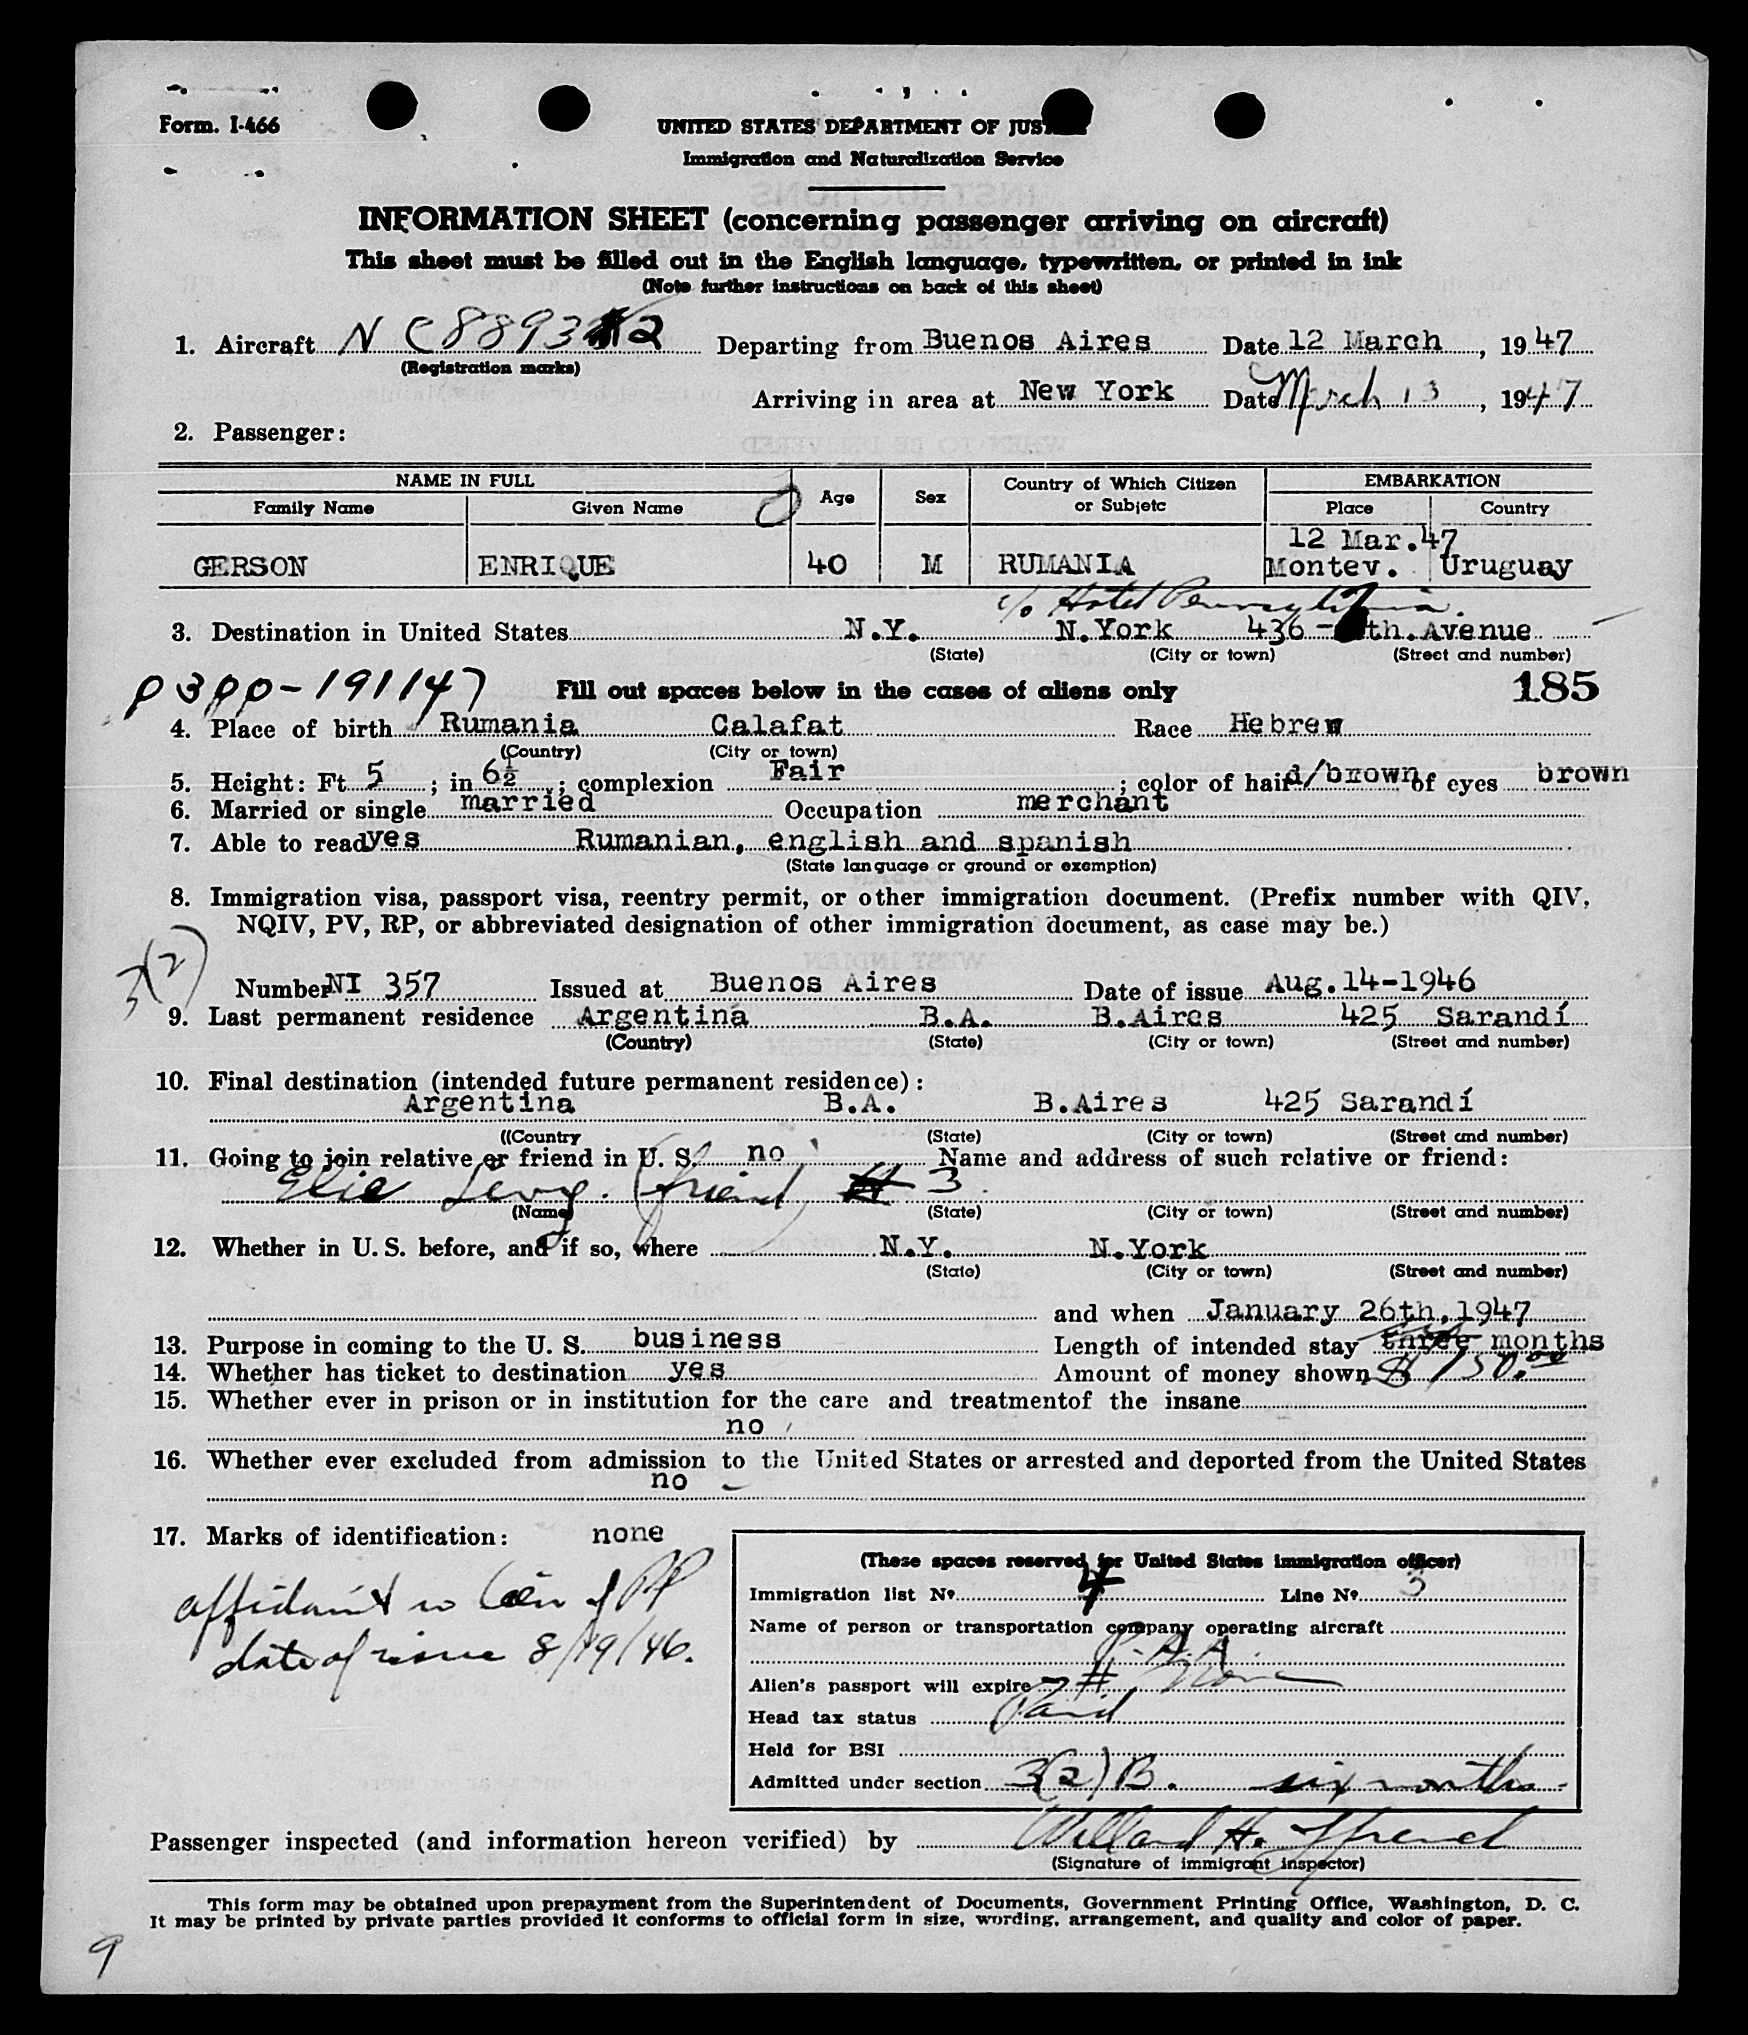 Form. I-466
UNITED STATES DEPARTMENT OF JUS
Immigration and Naturalization Service
INFORMATION SHEET (concerning passenger arriving on aircraft)
This sheet must be filled out in the English language, typewritten, or printed in ink
(Note further instructions on back of this sheet)
1. Aircraft N C 8893 2 Departing from Buenos Aires Date 12 March, 1947
(Registration marks)
Arriving in area at New York Date March 13, 1947
2. Passenger:
NAME IN FULL Age Sex Country of Which Citizen or Subjetc EMBARKATION
Family Name Given Name Place Country
12 Mar.47
GERSON ENRIQUE 40 M RUMANIA Montev. Uruguay
c/o Hotel Pennsylvania.
3. Destination in United States N.Y. N.York 436 - th.Avenue
(State) (City or town) (Street and number)
Fill out spaces below in the cases of aliens only 185
4. Place of birth Rumania Calafat Race Hebrew
(Country) (City or town)
5. Height: Ft 5 ; in 6½ ; complexion Fair ; color of hair d/brown of eyes brown
6. Married or single married Occupation merchant
7. Able to read yes Rumanian, english and spanish
(State language or ground or exemption)
8. Immigration visa, passport visa, reentry permit, or other immigration document. (Prefix number with QIV,
NQIV, PV, RP, or abbreviated designation of other immigration document, as case may be.)
3(2)
Number NI 357 Issued at Buenos Aires Date of issue Aug.14-1946
9. Last permanent residence Argentina B.A. B.Aires 425 Sarandí
(Country) (State) (City or town) (Street and number)
10. Final destination (intended future permanent residence):
Argentina B.A. B.Aires 425 Sarandí
((Country (State) (City or town) (Street and number)
11. Going to join relative or friend in U. S. no Name and address of such relative or friend:
Elie Levy. (friend) # 3
(Name) (State) (City or town) (Street and number)
12. Whether in U. S. before, and if so, where N.Y. N.York
(State) (City or town) (Street and number)
and when January 26th,1947
13. Purpose in coming to the U. S. business Length of intended stay three months
14. Whether has ticket to destination yes Amount of money shown $ 150.00
15. Whether ever in prison or in institution for the care and treatmentof the insane
no
16. Whether ever excluded from admission to the United States or arrested and deported from the United States
no
17. Marks of identification: none
affidavit in lieu of PP
date of issue 8/19/46.
(These spaces reserved for United States immigration officer)
Immigration list Nº 4 Line Nº 3
Name of person or transportation company operating aircraft
P.A.A
Alien's passport will expire
Head tax status Paid
Held for BSI
Admitted under section 3(2)B. six months
Passenger inspected (and information hereon verified) by Willard H. Ffrench
(Signature of immigrant inspector)
This form may be obtained upon prepayment from the Superintendent of Documents, Government Printing Office, Washington, D. C.
It may be printed by private parties provided it conforms to official form in size, wording, arrangement, and quality and color of paper.
9